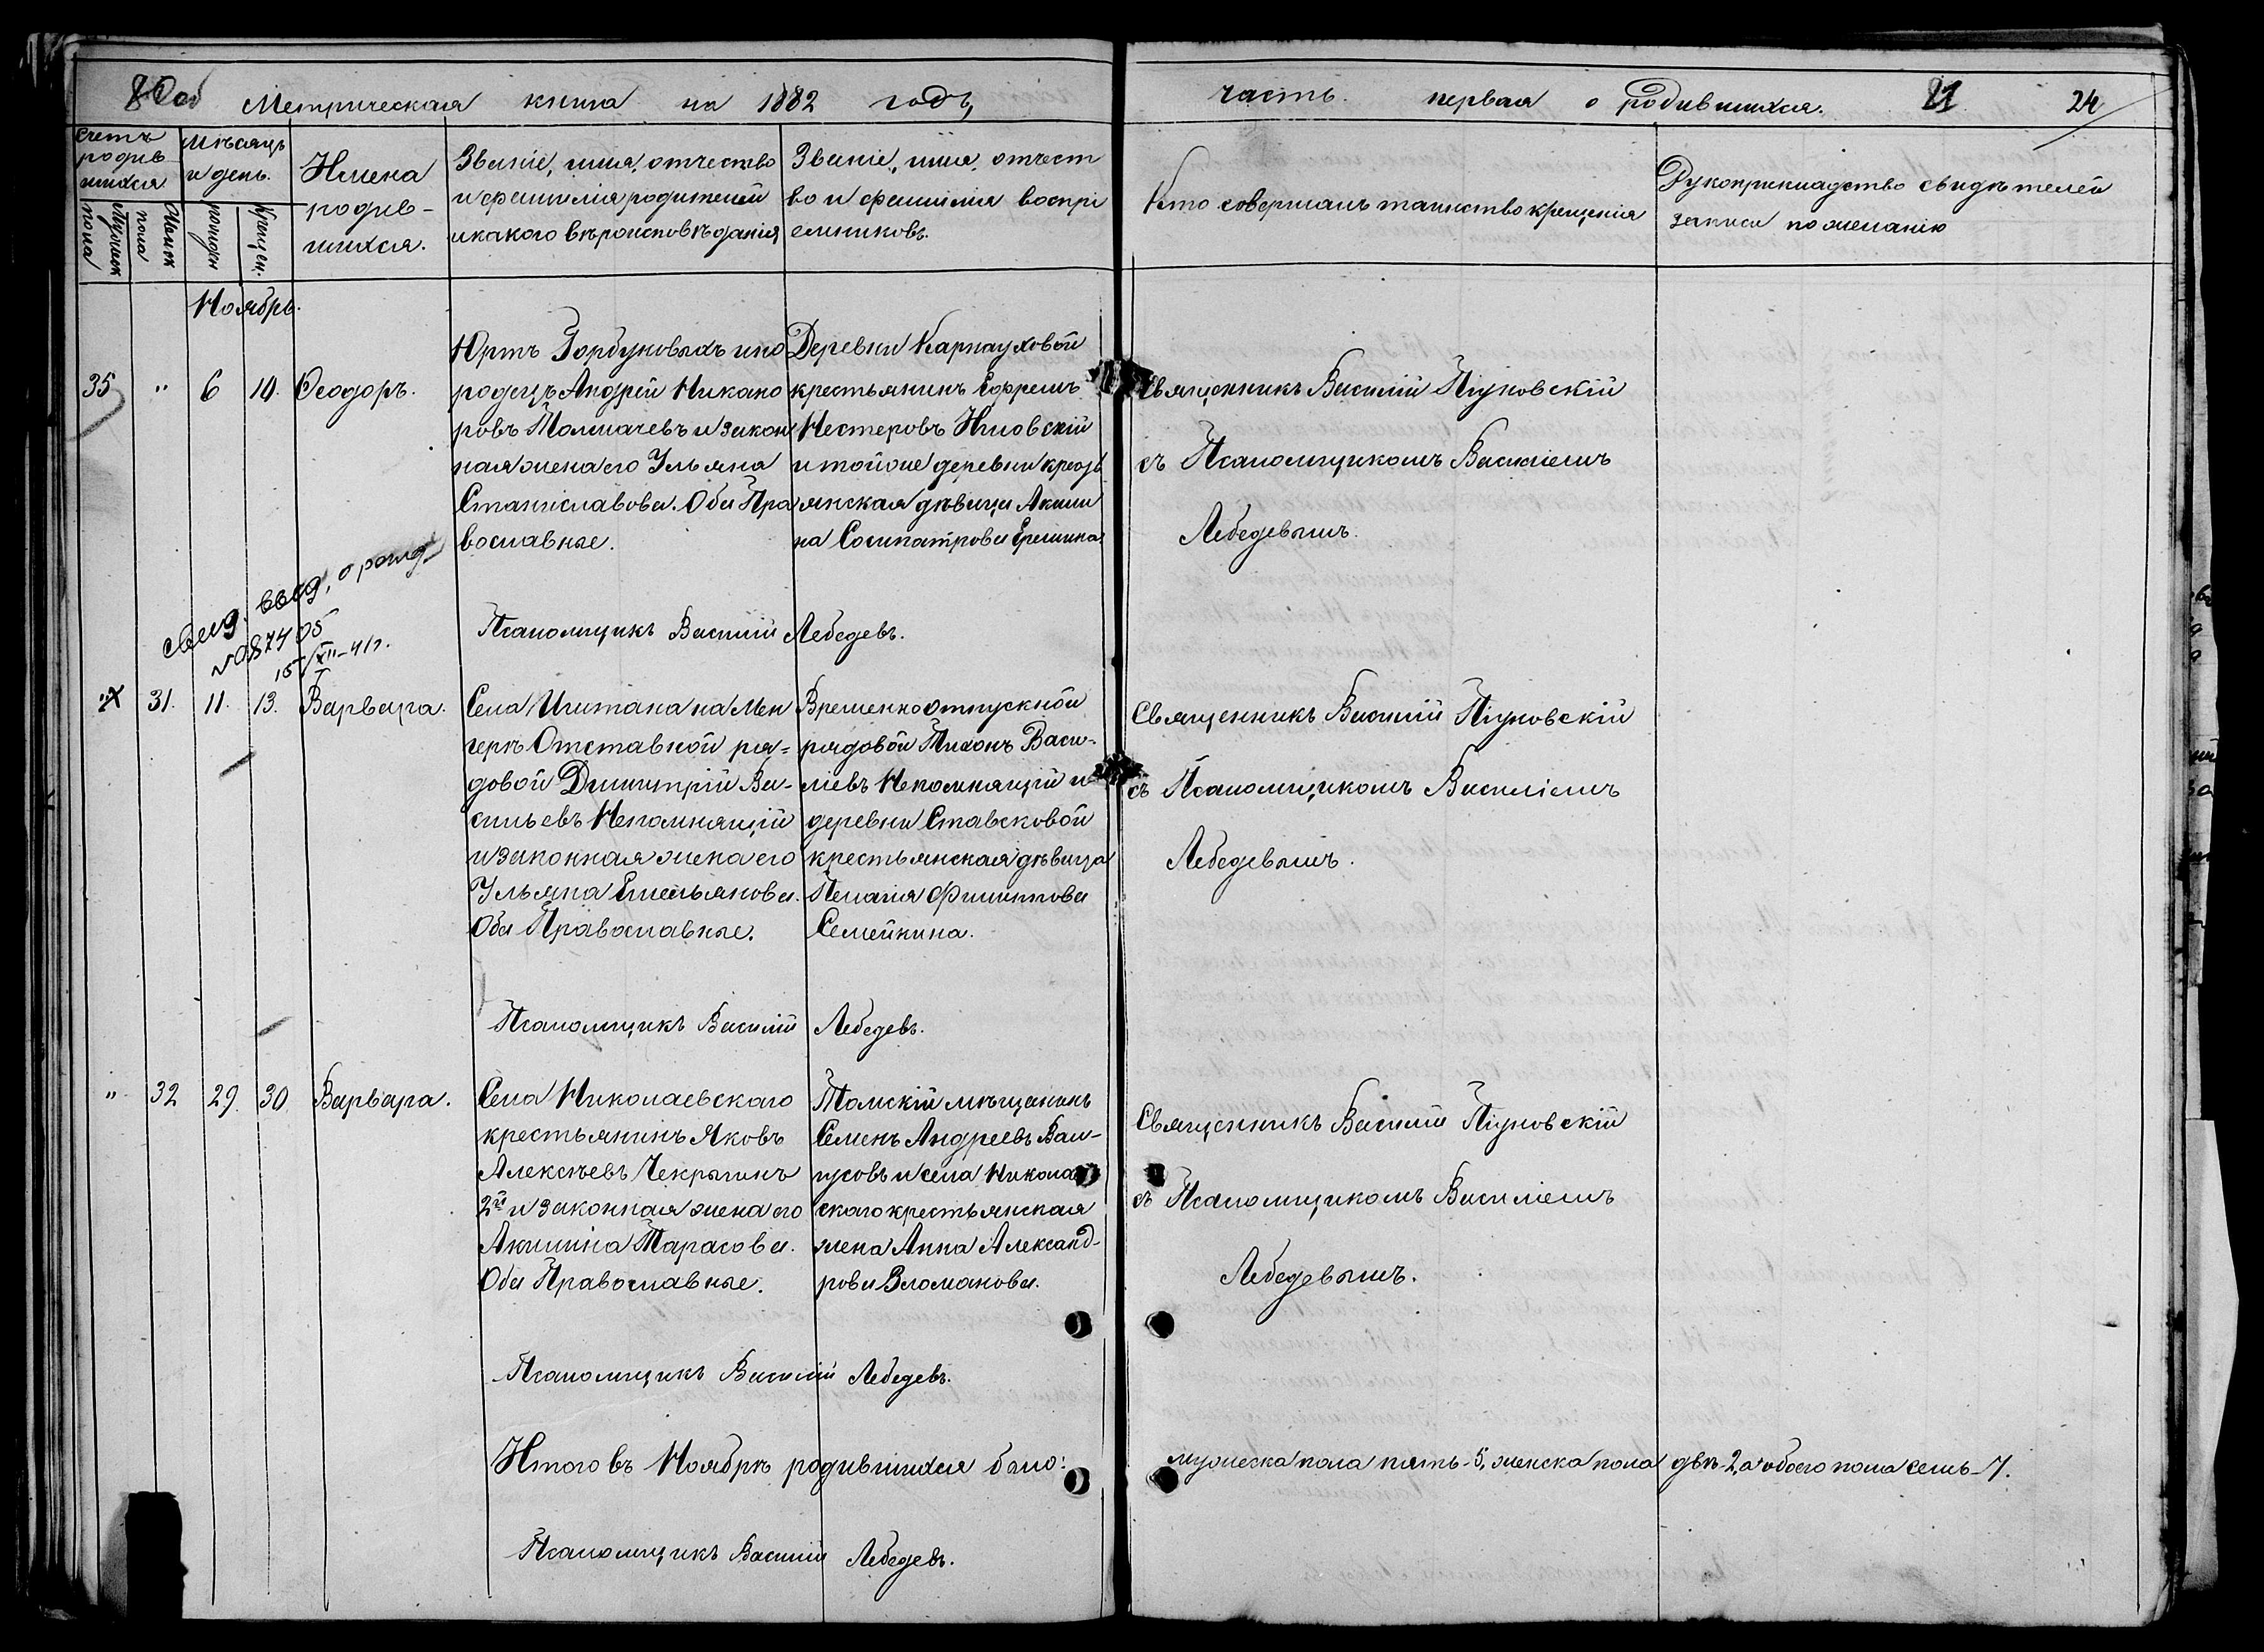 80об Метрическая книга на 1882 годъ,
часть первая о родившихся. 21 24
Счетъ родившихся
Мѣсяцъ и день.
Имена родив-
шихся.
Званіе, имя, отчество
и фамилія родителей
и какого вѣроисповѣданія
Званіе, имя, отчест
во и фамилія воспрі
емниковъ.
Кто совершалъ таинство крещенія
Рукоприкладство свидѣтелей
записи по желанію
Мужеск пола
Женск пола
рожден
Крещен.
Ноябрь.
35 " 6 10. Ѳеодоръ.
Юртъ Горбуновыхъ ино
родецъ Андрей Никано
ровъ Толмачевъ и закон
ная жена его Ульяна
Станиславова. Оба Пра
вославные.
Деревни Карнауховой
крестьянинъ Ефремъ
Нестеровъ Иловскій
и тойже деревни кресть
янская дѣвица Акили
на Сосипатрова Еремина
Священникъ Василій Пуновскій
съ Псаломщикомъ Василіемъ
Лебедевымъ.
Псаломщикъ Василій Лебедевъ.
свид. выд. о рожд
№ 087405
15/XII-41г.
" 31. 11. 13. Варвара.
Села Ишитана на Мен
герѣ Отставной ря-
довой Димитрій Ва-
сильевъ Непомнящій
и законная жена его
Ульяна Емельянова.
Оба Православные.
Временноотпускной
рядовой Тихонъ Васи-
ліевъ Непомнящій и
деревни Ставсковой
крестьянская дѣвица
Пелагія Филиппова
Семейкина.
Священникъ Василій Пуновскій
съ Псаломщикомъ Василіемъ
Лебедевымъ.
Псаломщикъ Василій Лебедевъ.
" 32 29. 30. Варвара.
Села Николаевскаго
крестьянинъ Яковъ
Алексѣевъ Чекрыгинъ
2й и законная жена его
Акилина Тарасова.
Оба Православные.
Томскій мѣщанинъ
Семенъ Андреевъ Вал-
гусовъ и села Николаев
скаго крестьянская
жена Анна Александ-
рова Зломанова.
Священникъ Василій Пуновскій
съ Псаломщикомъ Василіемъ
Лебедевымъ.
Псаломщикъ Василій Лебедевъ.
Итого въ Ноябрѣ родившихся было: мужеска пола пять-5, женска пола двѣ-2, а обоего пола семь-7.
Псаломщикъ Василій Лебедевъ.